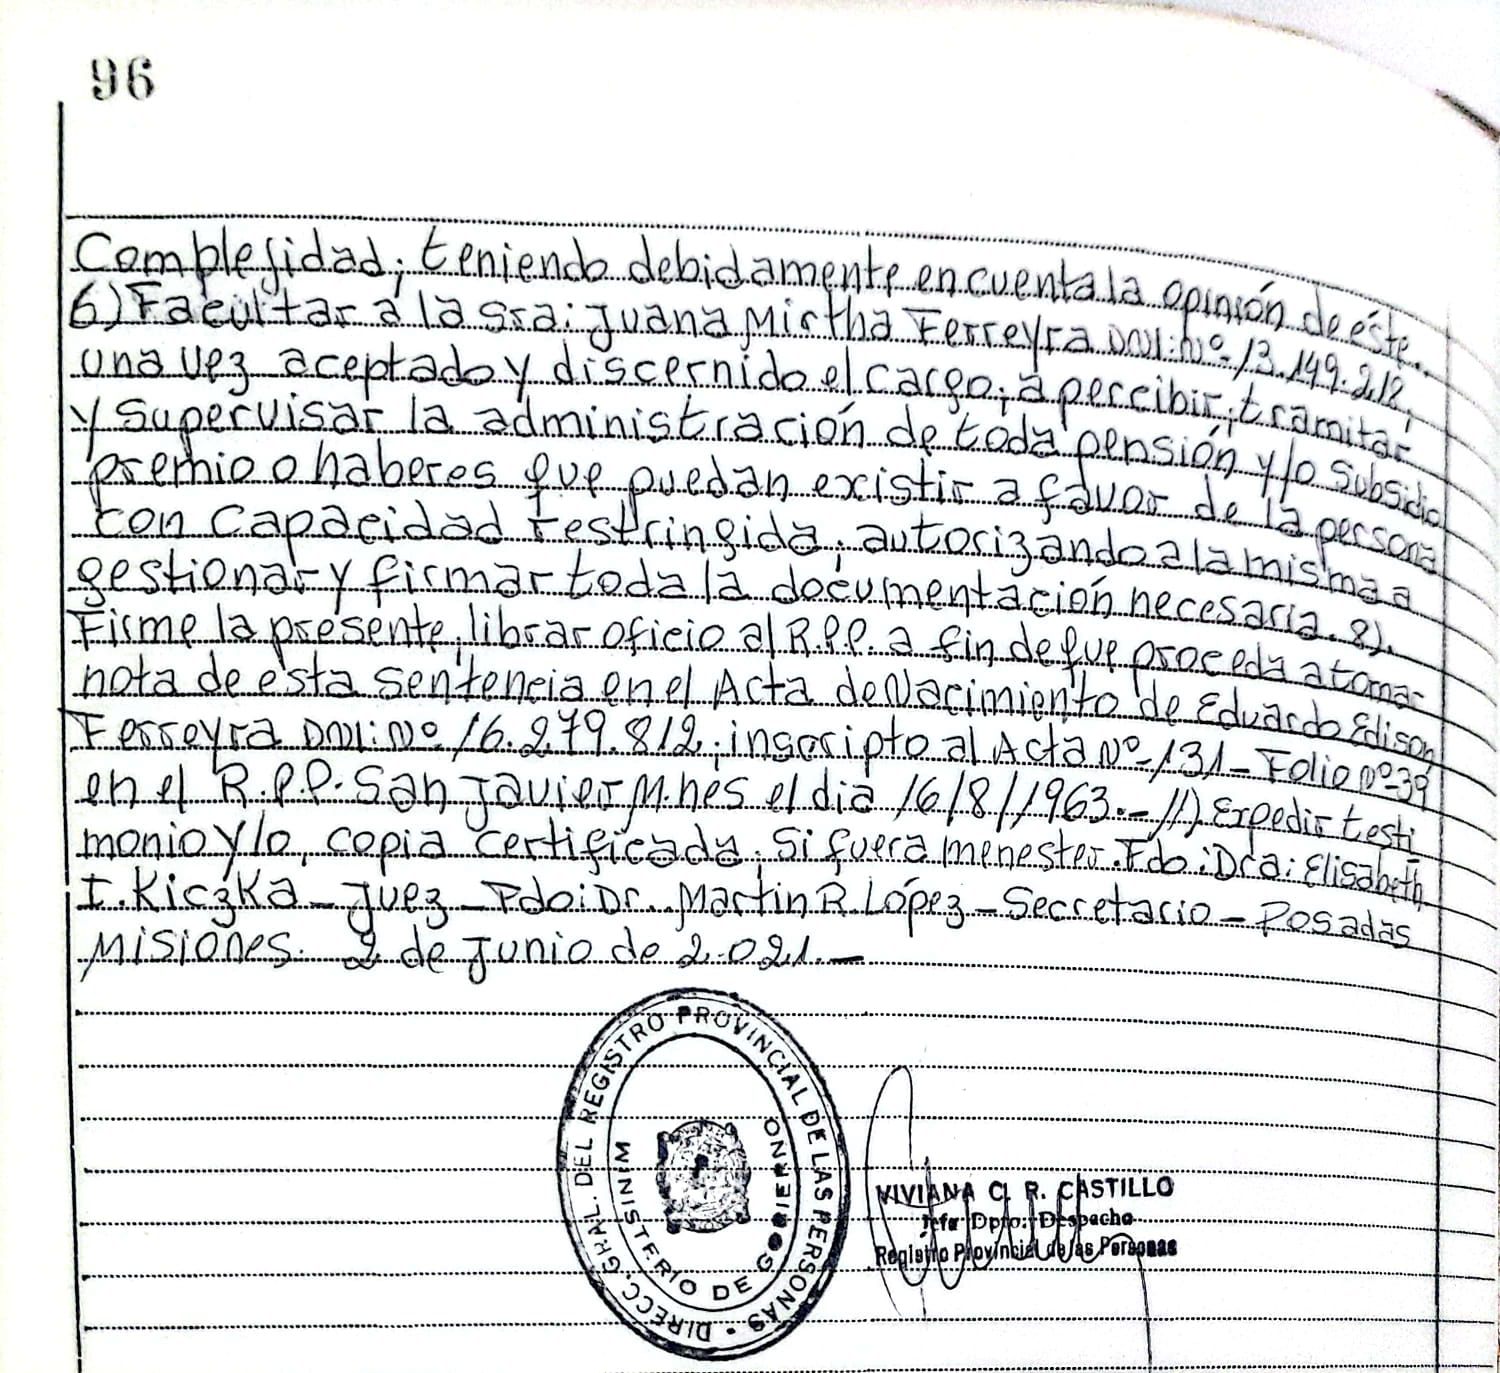 96
Complejidad; teniendo debidamente en cuenta la opinión de éste.
6) Facultar a la Sra: Juana Mirtha Ferreyra DNI: Nº 13.149.212,
una vez aceptado y discernido el cargo; a percibir, tramitar
y supervisar la administración de toda pensión y/o subsidio
premio o haberes que puedan existir a favor de la persona
con capacidad restringida, autorizando a la misma a
gestionar y firmar toda la documentación necesaria. 8).
Firme la presente, librar oficio al R.P.P. a fin de que proceda a tomar
nota de esta sentencia en el Acta de Nacimiento de Eduardo Edison
Ferreyra DNI: Nº 16.279.812; inscripto al Acta Nº 131 - Folio Nº 39
en el R.P.P. San Javier M.nes el dia 16/8/1963.- 11) Expedir testi
monio y/o, copia certificada, si fuera menester. Fdo: Dra: Elisabeth
I. Kiczka - Juez - Fdo: Dr. Martin R. López - Secretario - Posadas
Misiones. 2 de Junio de 2.021.-
DIRECC. GRAL. DEL REGISTRO PROVINCIAL DE LAS PERSONAS
MINISTERIO DE GOBIERNO
VIVIANA C. R. CASTILLO
Jefa Dpto. Despacho
Registro Provincial de las Personas